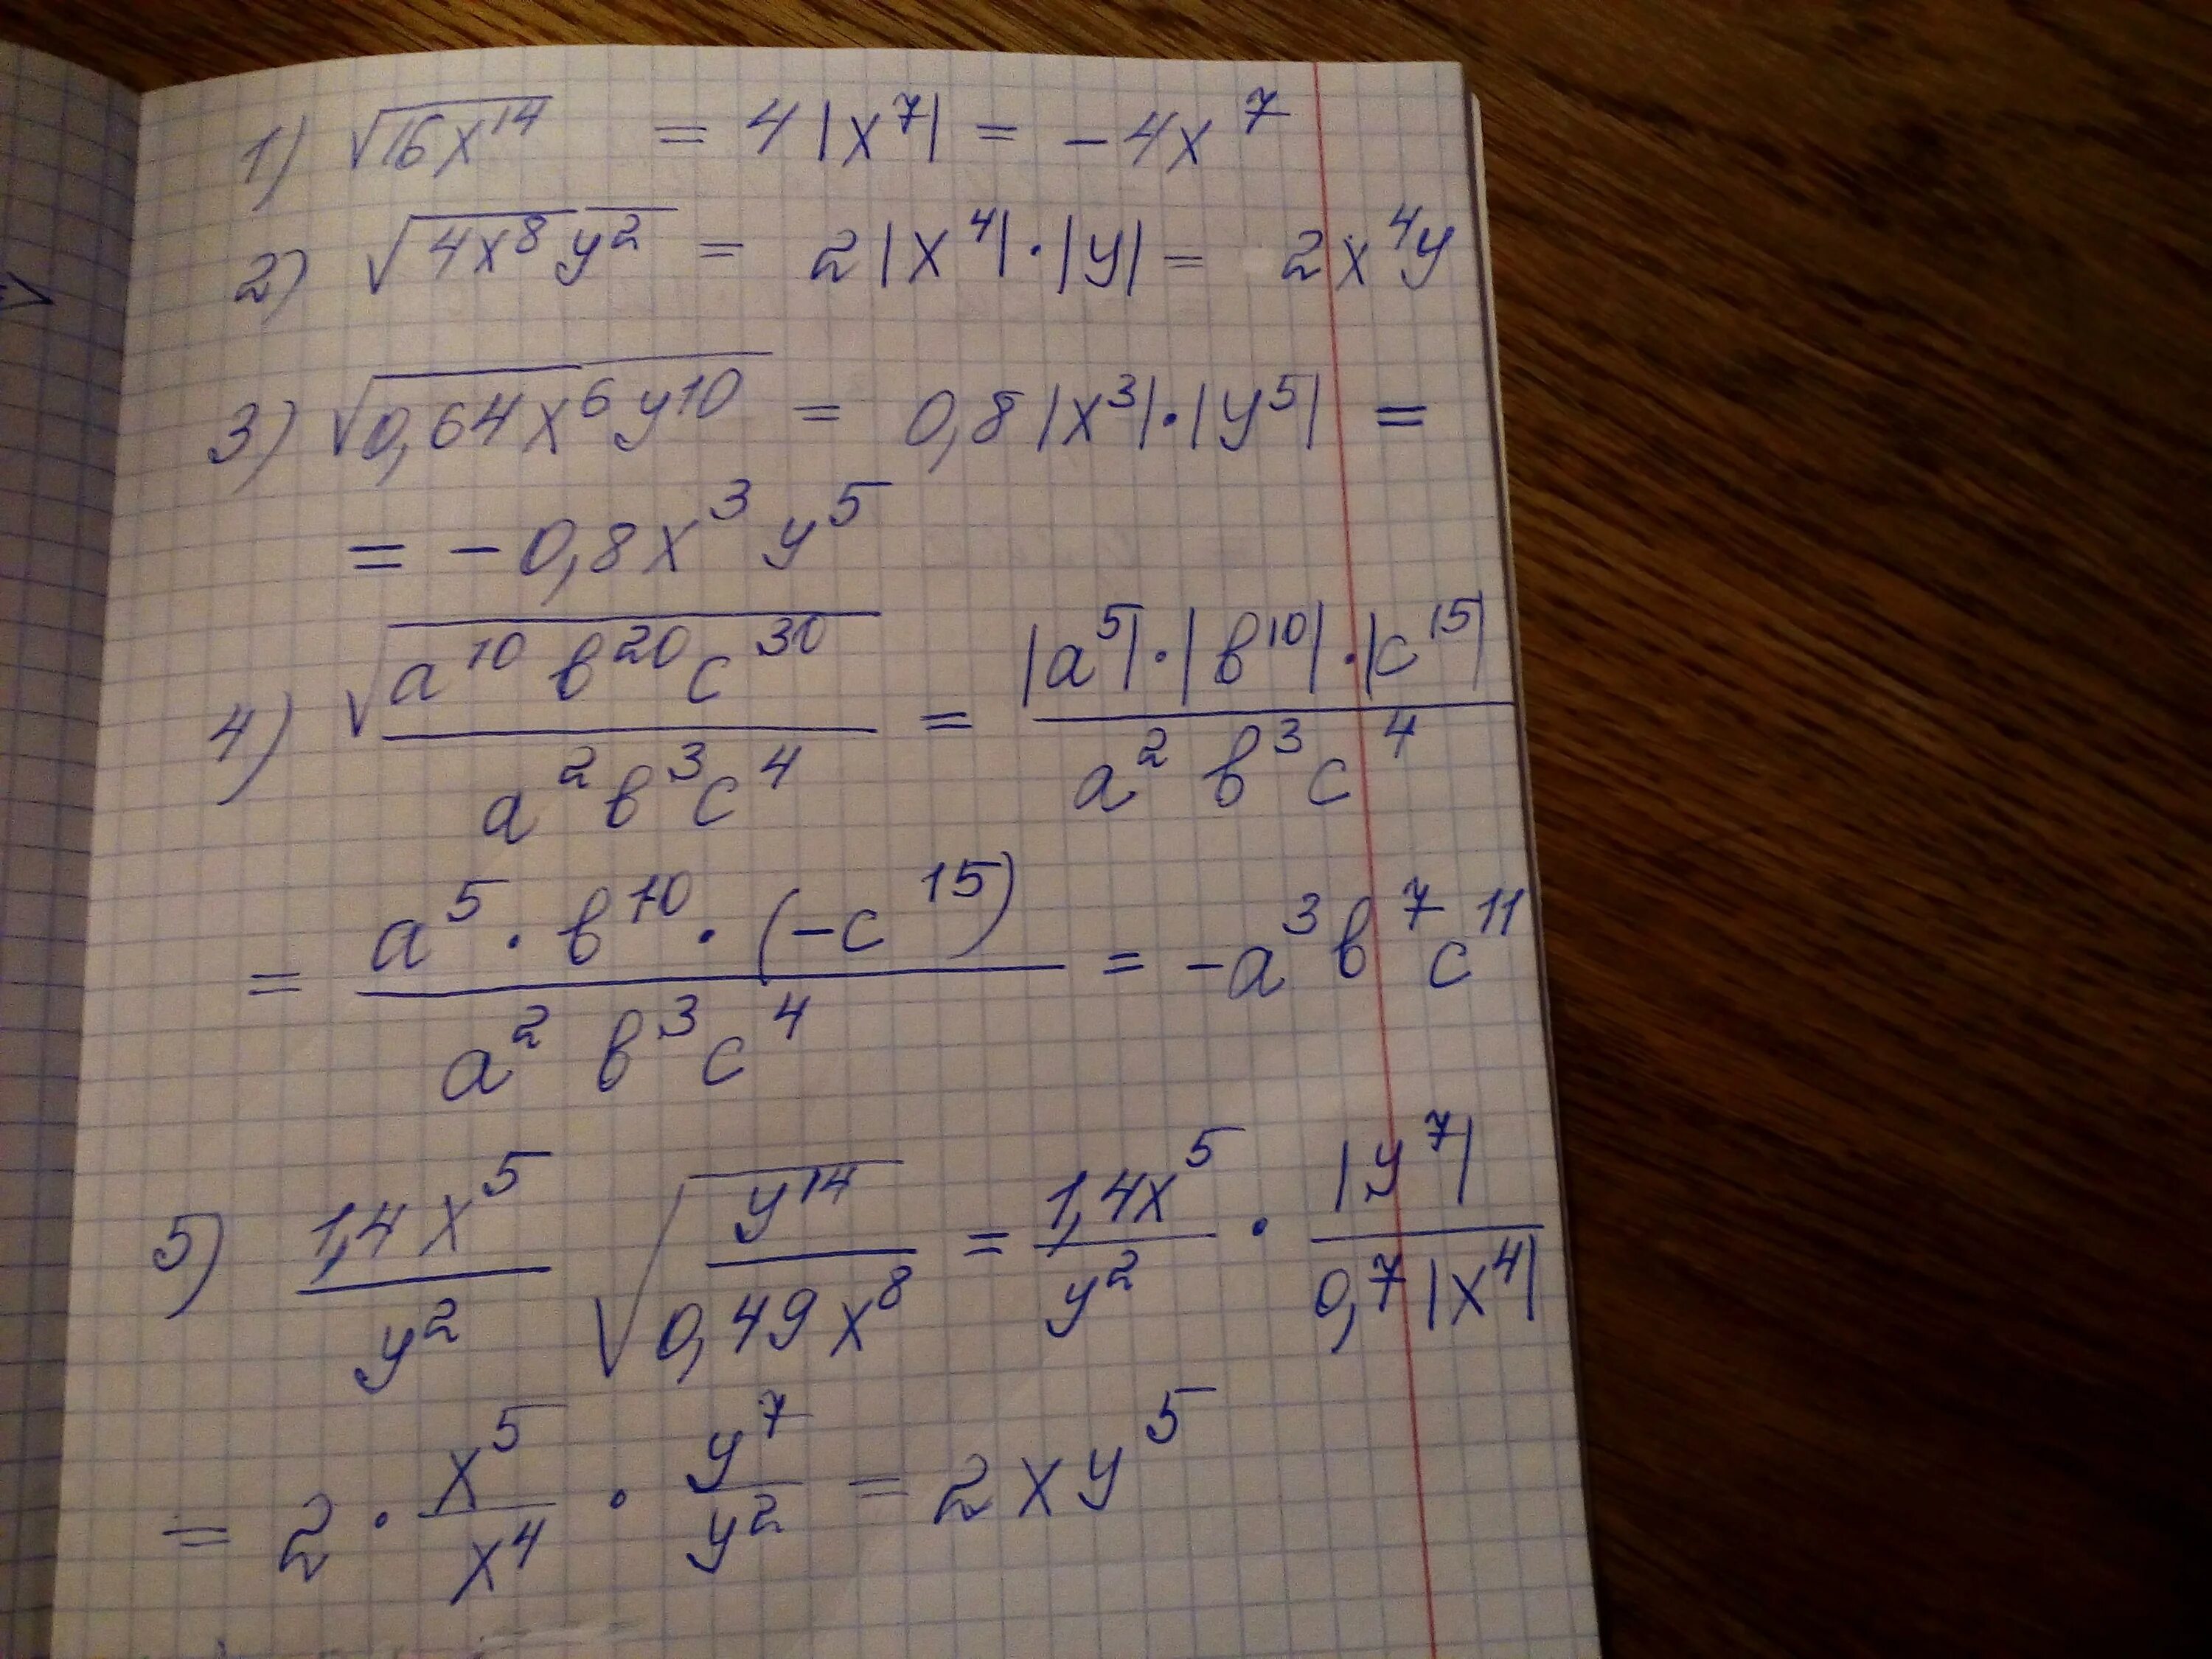 1) √16x¹⁴ = 4|x⁷| = -4x⁷
2) √4x⁸y² = 2|x⁴|·|y| = 2x⁴y
3) √0,64x⁶y¹⁰ = 0,8|x³|·|y⁵| =
= -0,8x³y⁵
4) √a¹⁰в²⁰c³⁰ / a²в³c⁴ = |a⁵|·|в¹⁰|·|c¹⁵| / a²в³c⁴
= a⁵·в¹⁰·(-c¹⁵) / a²в³c⁴ = -a³в⁷c¹¹
5) 1,4x⁵/y² √(y¹⁴/0,49x⁸) = 1,4x⁵/y² · |y⁷|/0,7|x⁴|
= 2·x⁵/x⁴·y⁷/y² = 2xy⁵